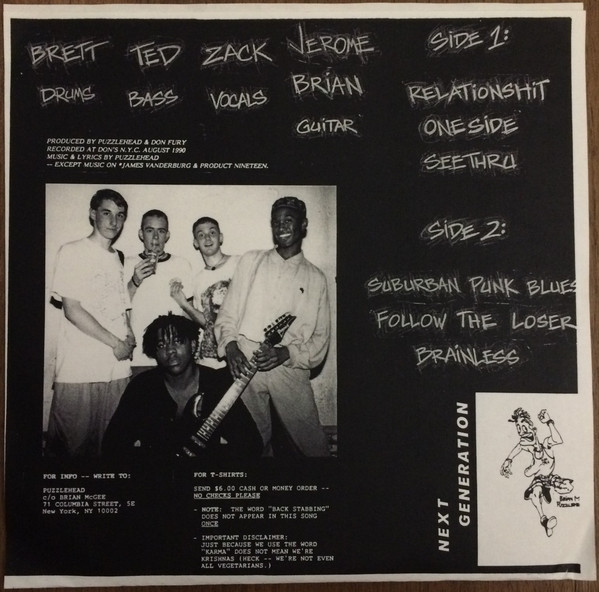 BRETT TED ZACK JEROME
BRIAN
DRUMS BASS VOCALS
GUITAR
PRODUCED BY PUZZLEHEAD & DON FURY
RECORDED AT DON'S N.Y.C. AUGUST 1990
MUSIC & LYRICS BY PUZZLEHEAD
-- EXCEPT MUSIC ON *JAMES VANDERBURG & PRODUCT NINETEEN.
SIDE 1:
RELATIONSHIT
ONE SIDE
SEE THRU
SIDE 2:
SUBURBAN PUNK BLUES
FOLLOW THE LOSER
BRAINLESS
FOR INFO -- WRITE TO:
PUZZLEHEAD
c/o BRIAN McGEE
71 COLUMBIA STREET, 5E
New York, NY 10002
FOR T-SHIRTS:
SEND $6.00 CASH OR MONEY ORDER --
NO CHECKS PLEASE
- NOTE: THE WORD "BACK STABBING"
DOES NOT APPEAR IN THIS SONG
ONCE
- IMPORTANT DISCLAIMER:
JUST BECAUSE WE USE THE WORD
"KARMA" DOES NOT MEAN WE'RE
KRISHNAS (HECK -- WE'RE NOT EVEN
ALL VEGETARIANS.)
NEXT
GENERATION